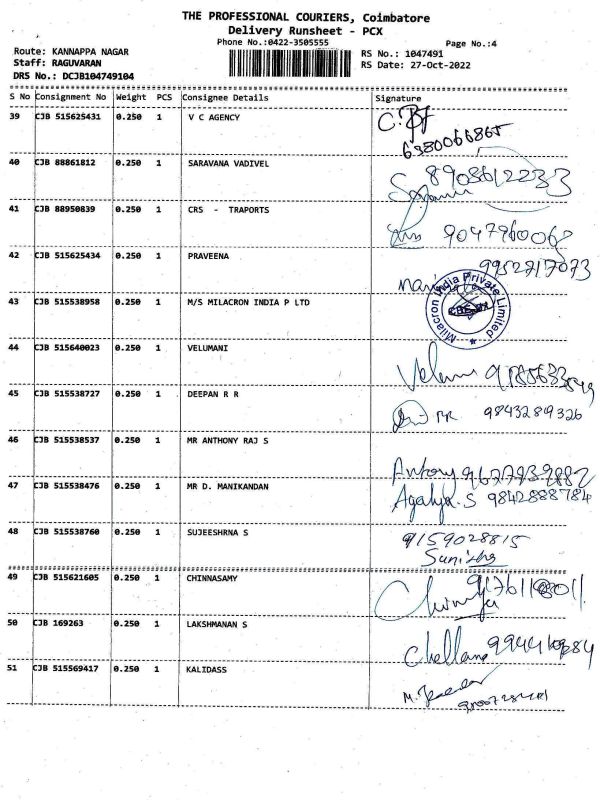 THE PROFESSIONAL COURIERS, Coimbatore
Delivery Runsheet - PCX
Phone No.:0422-3505555
Page No.:4
Route: KANNAPPA NAGAR
RS No.: 1047491
Staff: RAGUVARAN
RS Date: 27-Oct-2022
DRS No.: DCJB104749104
S No Consignment No Weight PCS Consignee Details Signature
39 CJB 515625431 0.250 1 V C AGENCY
6380066865
40 CJB 88861812 0.250 1 SARAVANA VADIVEL 8903612233
41 CJB 88950839 0.250 1 CRS - TRAPORTS 9047960068
42 CJB 515625434 0.250 1 PRAVEENA 9952717073
43 CJB 515538958 0.250 1 M/S MILACRON INDIA P LTD
Milacron India Private Limited
44 CJB 515640023 0.250 1 VELUMANI
45 CJB 515538727 0.250 1 DEEPAN R R RR 9843289326
46 CJB 515538537 0.250 1 MR ANTHONY RAJ S
Antony
47 CJB 515538476 0.250 1 MR D. MANIKANDAN
Agalya.S 9842888784
48 CJB 515538760 0.250 1 SUJEESHRNA S 9159028815
49 CJB 515621605 0.250 1 CHINNASAMY
50 CJB 169263 0.250 1 LAKSHMANAN S
51 CJB 515569417 0.250 1 KALIDASS